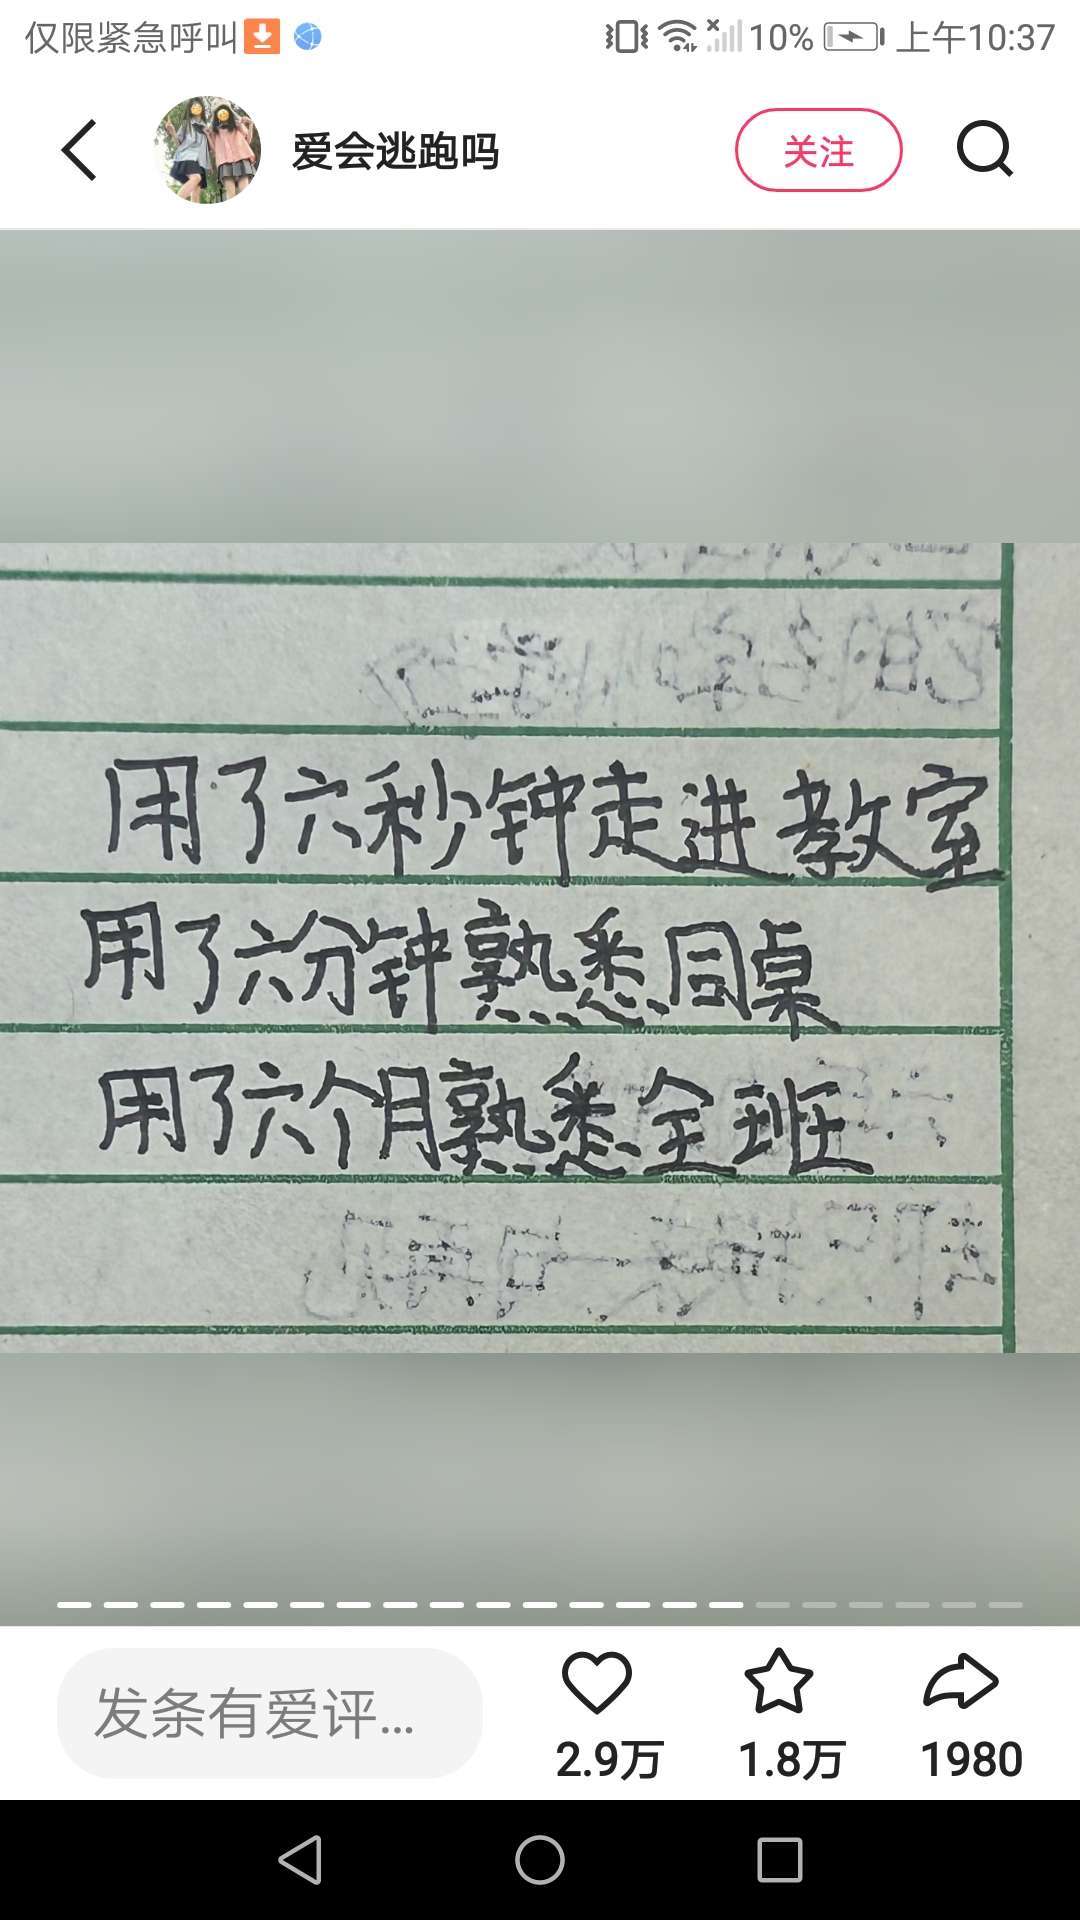 仅限紧急呼叫 10% 上午10:37
爱会逃跑吗 关注
用了六秒钟走进教室
用了六分钟熟悉同桌
用了六个月熟悉全班
发条有爱评...
2.9万 1.8万 1980